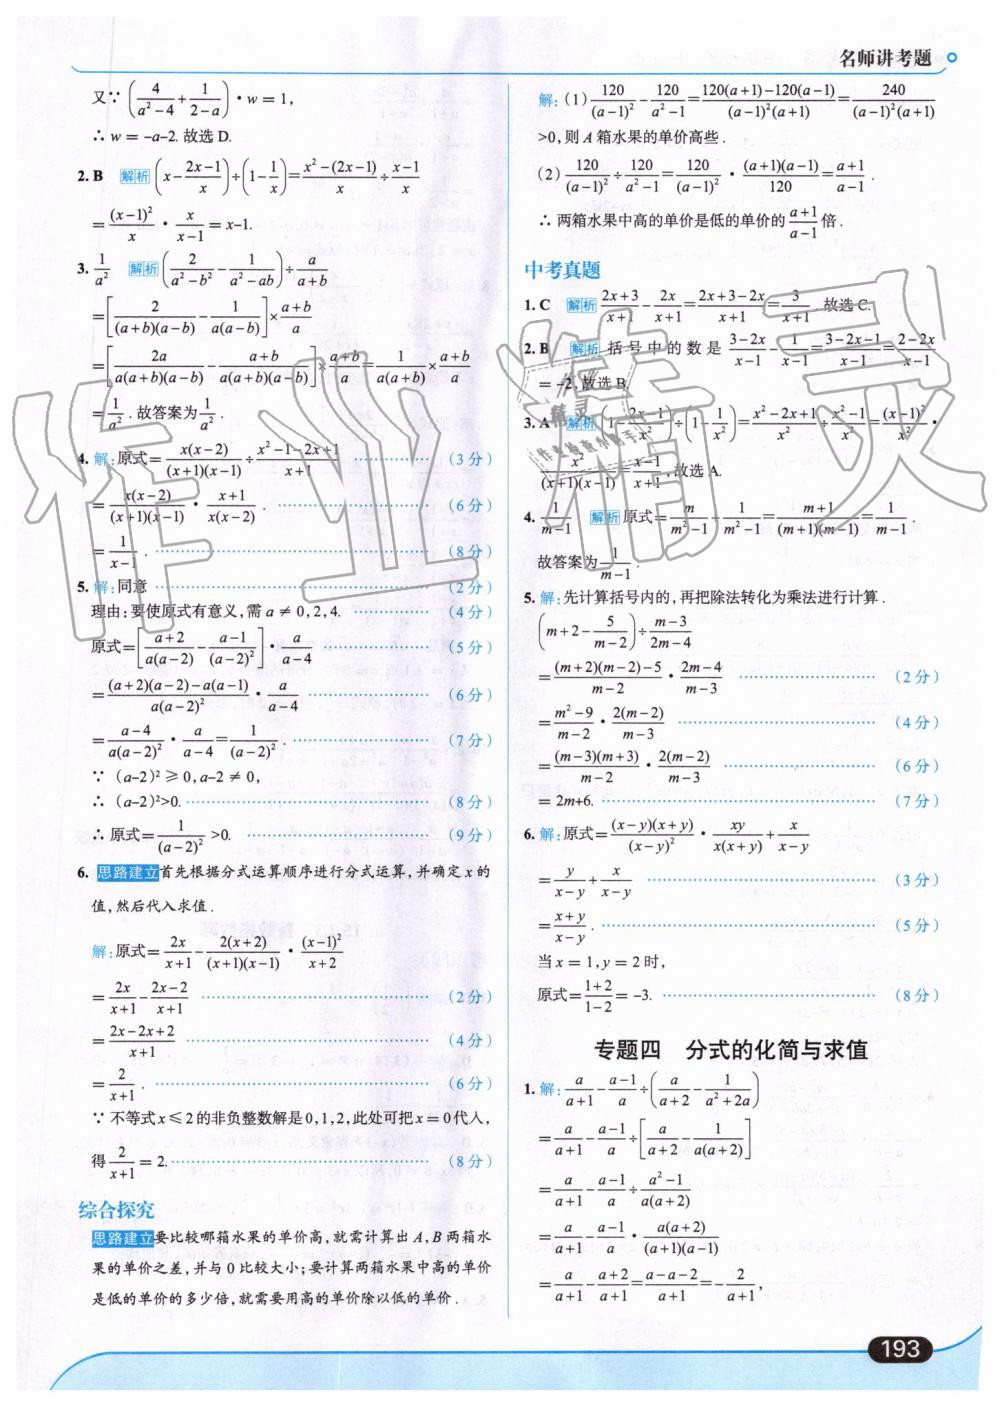 名师讲考题
又∵(4/(a²-4)+1/(2-a))·w=1,
∴w=-a-2.故选D.
2.B 解析 (x-(2x-1)/x)÷(1-1/x)=(x²-(2x-1))/x÷(x-1)/x
=(x-1)²/x·x/(x-1)=x-1.
3. 1/a² 解析 (2/(a²-b²)-1/(a²-ab))÷a/(a+b)
=[2/((a+b)(a-b))-1/(a(a-b))]×(a+b)/a
=[2a/(a(a+b)(a-b))-(a+b)/(a(a+b)(a-b))]×(a+b)/a=1/(a(a+b))×(a+b)/a
=1/a².故答案为1/a².
4.解:原式=x(x-2)/((x+1)(x-1))÷(x²-1-2x+1)/(x+1) (3分)
=x(x-2)/((x+1)(x-1))·(x+1)/(x(x-2)) (6分)
=1/(x-1). (8分)
5.解:同意 (2分)
理由:要使原式有意义,需a≠0,2,4. (4分)
原式=[(a+2)/(a(a-2))-(a-1)/(a-2)²]·a/(a-4) (5分)
=((a+2)(a-2)-a(a-1))/(a(a-2)²)·a/(a-4) (6分)
=(a-4)/(a(a-2)²)·a/(a-4)=1/(a-2)². (7分)
∵(a-2)²≥0,a-2≠0,
∴(a-2)²>0. (8分)
∴原式=1/(a-2)²>0. (9分)
6. 思路建立 首先根据分式运算顺序进行分式运算,并确定x的
值,然后代入求值.
解:原式=2x/(x+1)-2(x+2)/((x+1)(x-1))·(x-1)²/(x+2)
=2x/(x+1)-(2x-2)/(x+1) (2分)
=(2x-2x+2)/(x+1) (4分)
=2/(x+1). (6分)
∵不等式x≤2的非负整数解是0,1,2,此处可把x=0代入,
得2/(x+1)=2. (8分)
综合探究
思路建立 要比较哪箱水果的单价高,就需计算出A,B两箱水
果的单价之差,并与0比较大小;要计算两箱水果中高的单价
是低的单价的多少倍,就需要用高的单价除以低的单价.
解:(1)120/(a-1)²-120/(a²-1)=(120(a+1)-120(a-1))/((a-1)²(a+1))=240/((a-1)²(a+1))
>0,则A箱水果的单价高些.
(2)120/(a-1)²÷120/(a²-1)=120/(a-1)²·(a+1)(a-1)/120=(a+1)/(a-1).
∴两箱水果中高的单价是低的单价的(a+1)/(a-1)倍.
中考真题
1.C 解析 (2x+3)/(x+1)-2x/(x+1)=(2x+3-2x)/(x+1)=3/(x+1).故选C.
2.B 解析 括号中的数是(3-2x)/(x-1)-1/(x-1)=(3-2x-1)/(x-1)=(2-2x)/(x-1)
=-2,故选B.
3.A 解析 (1-(2x-1)/x²)÷(1-1/x²)=(x²-2x+1)/x²÷(x²-1)/x²=(x-1)²/x²·
x²/((x+1)(x-1))=(x-1)/(x+1),故选A.
4. 1/(m-1) 解析 原式=m/(m²-1)+1/(m²-1)=(m+1)/((m+1)(m-1))=1/(m-1).
故答案为1/(m-1).
5.解:先计算括号内的,再把除法转化为乘法进行计算.
(m+2-5/(m-2))÷(m-3)/(2m-4)
=((m+2)(m-2)-5)/(m-2)·(2m-4)/(m-3) (2分)
=(m²-9)/(m-2)·2(m-2)/(m-3) (4分)
=(m-3)(m+3)/(m-2)·2(m-2)/(m-3) (6分)
=2m+6. (7分)
6.解:原式=(x-y)(x+y)/(x-y)²·xy/(x(x+y))+x/(x-y)
=y/(x-y)+x/(x-y) (3分)
=(x+y)/(x-y). (5分)
当x=1,y=2时,
原式=(1+2)/(1-2)=-3. (8分)
专题四 分式的化简与求值
1.解:a/(a+1)-(a-1)/a÷(a/(a+2)-1/(a²+2a))
=a/(a+1)-(a-1)/a÷[a/(a+2)-1/(a(a+2))]
=a/(a+1)-(a-1)/a÷(a²-1)/(a(a+2))
=a/(a+1)-(a-1)/a·a(a+2)/((a+1)(a-1))
=a/(a+1)-(a+2)/(a+1)=(a-a-2)/(a+1)=-2/(a+1),
193
作业精灵